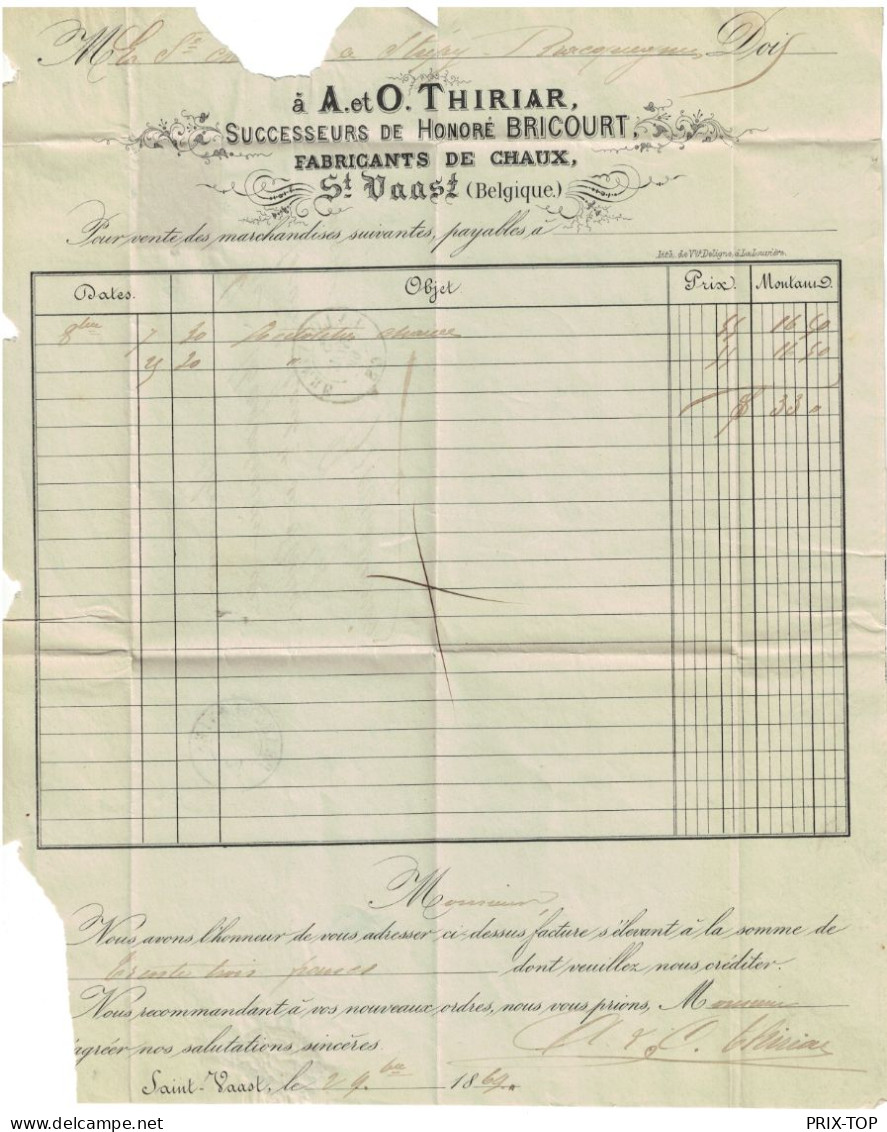 M La St a Strépy-Bracquegnies Doit
à A. et O. THIRIAR,
SUCCESSEURS DE HONORÉ BRICOURT,
FABRICANTS DE CHAUX,
St Vaast (Belgique.)
Pour vente des marchandises suivantes, payables à
Lith. de Vve Deligne à La Louvière.
Dates. Objet Prix. Montant.
8bre 7 20 chaux 55 16 50
25 20 " 55 16 50
F 33 0
Monsieur,
Nous avons l'honneur de vous adresser ci-dessus, facture s'élevant à la somme de
trente trois francs dont veuillez nous créditer.
Nous recommandant à vos nouveaux ordres, nous vous prions, Monsieur
agréer nos salutations sincères.
A & O. Thiriar
Saint-Vaast, le 2 9bre 1869
PRIX-TOP